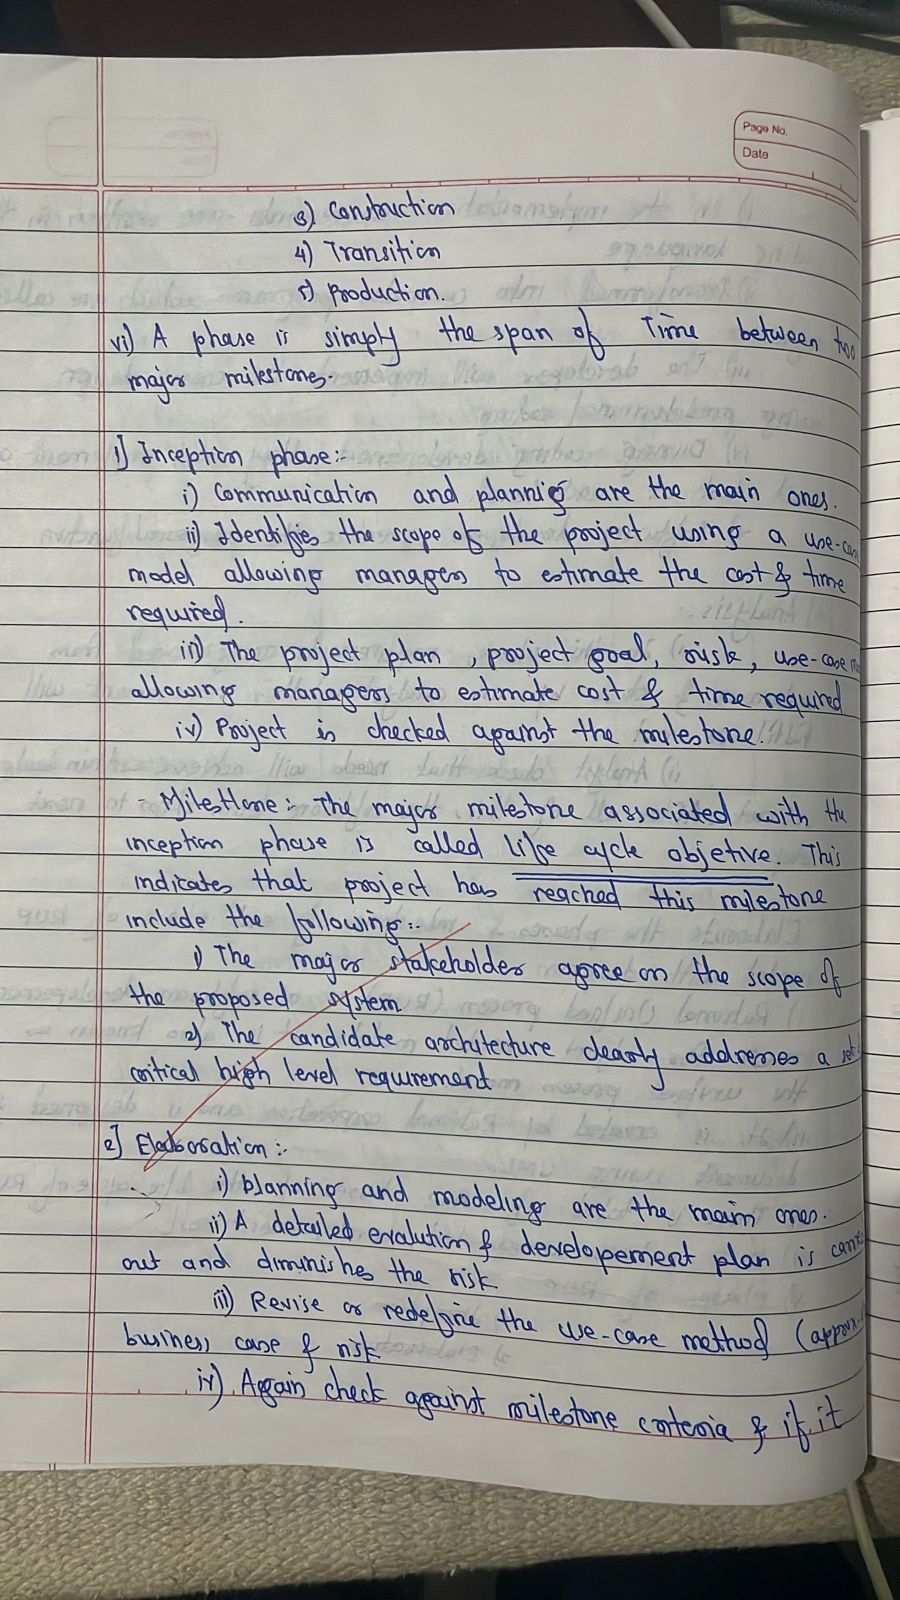 Page No.
Date
3) Construction
4) Transition
5) Production.
vi) A phase is simply the span of Time between two
major milestones.
1] Inception phase:-
i) Communication and plannig are the main ones.
ii) Identifies the scope of the project using a use-case
model allowing managers to estimate the cost & time
required.
iii) The project plan, project goal, risk, use-case
allowing managers to estimate cost & time required
iv) Project is checked against the milestone.
- Milestone:- The major milestone associated with the
inception phase is called life cycle objetive. This
indicates that project has reached this milestone
include the following:-
1) The major stakeholder agree on the scope of
the proposed system
2) The candidate architecture clearly addresses a set
critical high level requirement
2] Elaboration:-
i) planning and modeling are the main ones.
ii) A detailed evalution & developement plan is
out and diminishes the risk
iii) Revise or redefine the use-case method (approx.
business case & risk
iv) Again check against milestone criteria & if it